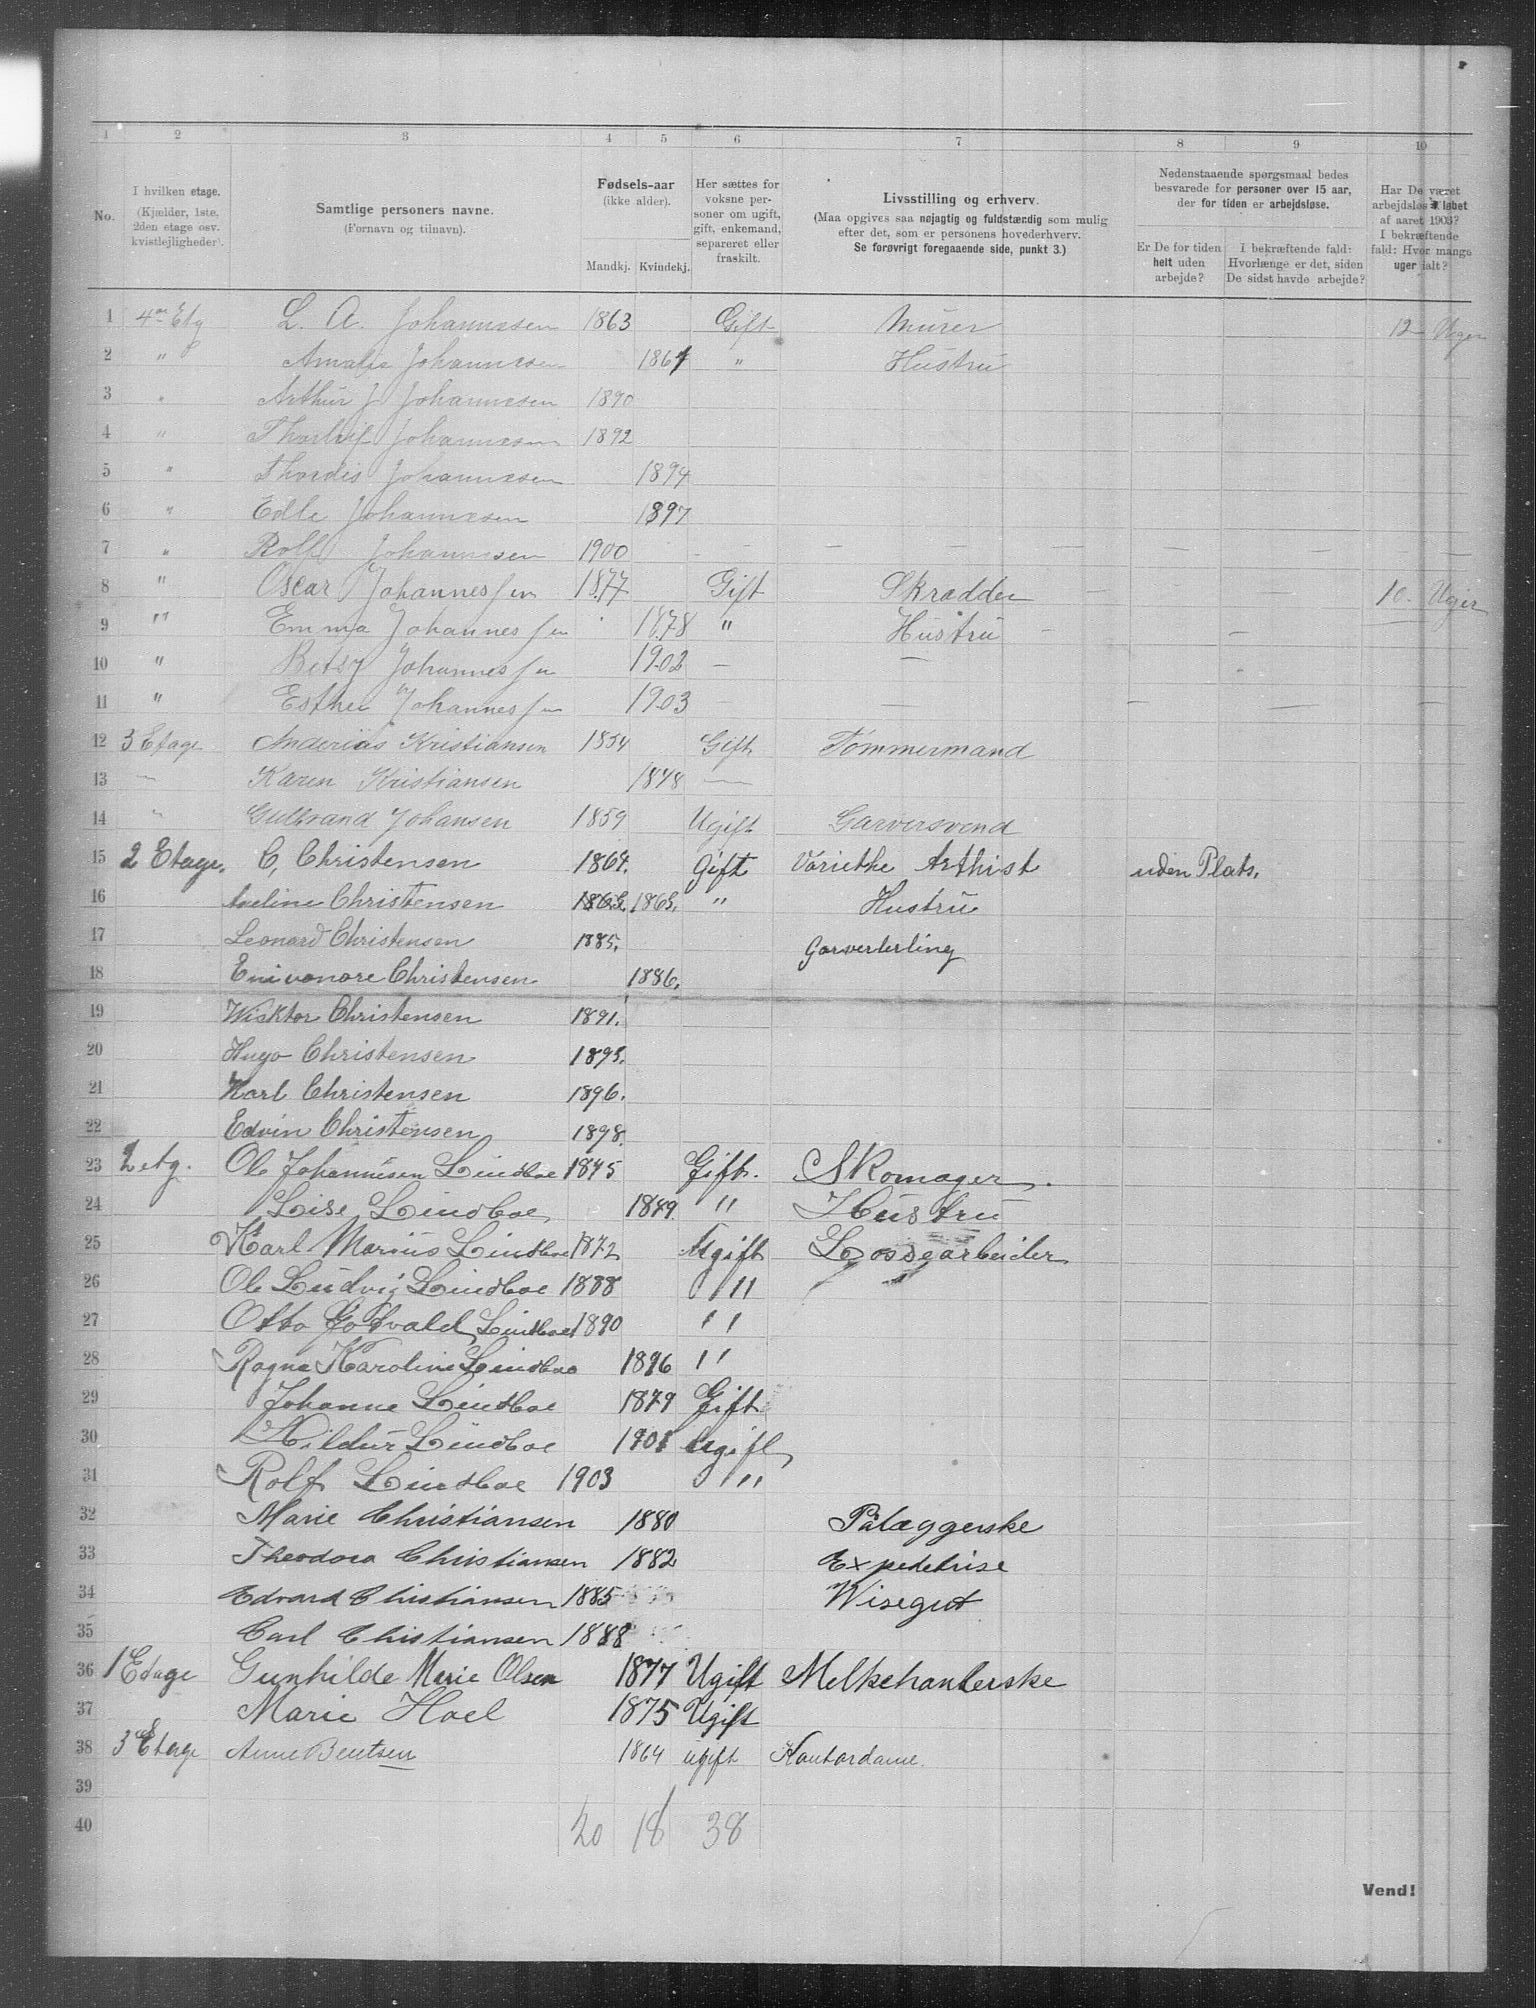 1 2 3 4 5 6 7 8 9 10
No.
I hvilken etage. (Kjælder, 1ste, 2den etage osv. kvistlejligheder).
Samtlige personers navne. (Fornavn og tilnavn).
Fødsels-aar (ikke alder). Mandkj. Kvindekj.
Her sættes for voksne personer om ugift, gift, enkemand, separeret eller fraskilt.
Livsstilling og erhverv. (Maa opgives saa nøjagtig og fuldstændig som mulig efter det, som er personens hovederhverv. Se forøvrigt foregaaende side, punkt 3.)
Nedenstaaende spørgsmaal bedes besvarede for personer over 15 aar, der for tiden er arbejdsløse.
Er De for tiden helt uden arbejde?
I bekræftende fald: Hvorlænge er det, siden De sidst havde arbejde?
Har De været arbejdsløs i løbet af aaret 1903? I bekræftende fald: Hvor mange uger ialt?
1 4de Etg L. A. Johannesen 1863 Gift Murer 12 Uger
2 " Amalie Johannesen 1861 " Hustru
3 " Arthur J Johannesen 1890
4 " Thorleif Johannesen 1892
5 " Thordis Johannesen 1894
6 " Edle Johannesen 1897
7 " Rolf Johannesen 1900 - - - - - - -
8 " Oscar Johannessen 1877 Gift Skrædder - - 10. Uger
9 " Emma Johannessen 1878 " Hustru - -
10 " Betsy Johannessen 1902 - -
11 " Esther Johannessen 1903 - - - - -
12 3 Etage Anderias Kristiansen 1854 Gift Tömmermand
13 — Karen Kristiansen 1848 —
14 " Gulbrand Johansen 1859 Ugift Garversvend
15 2 Etage. C, Christensen 1864. Gift Variethe Arthist uden Plats.
16 Christensen 1865. 1865. " Hustru
17 Leonard Christensen 1885. Garverlerling
18 Christensen 1886.
19 Wisktor Christensen 1891.
20 Hugo Christensen 1895.
21 Karl Christensen 1896.
22 Edvin Christensen 1898.
23 2 etg. Ole Johannesen Lindboe 1845 Gift. Skomager.
24 Lise Lindboe 1849. " Hustru
25 Karl Marius Lindboe 1872 Ugift Lossearbeider
26 Ole Ludvig Lindboe 1888 "
27 Otto Gotvald Lindboe 1890 "
28 Ragna Karoline Lindboe 1896 "
29 Johanne Lindboe 1879 Gift
30 Hildur Lindboe 1901 Ugift
31 Rolf Lindboe 1903 "
32 Marie Christiansen 1880 Pålæggerske
33 Theodora Christiansen 1882 Expedetrise
34 Edvard Christiansen 1885 Wisegut
35 Carl Christiansen 1888
36 1 Etage Gunhilde Marie Olsen 1877 Ugift Melkehanlerske
37 Marie Hoel 1875 Ugift
38 3 Etage Anne Bentsen 1864 ugift Kontordame.
39
40 20 18 38
Vend!